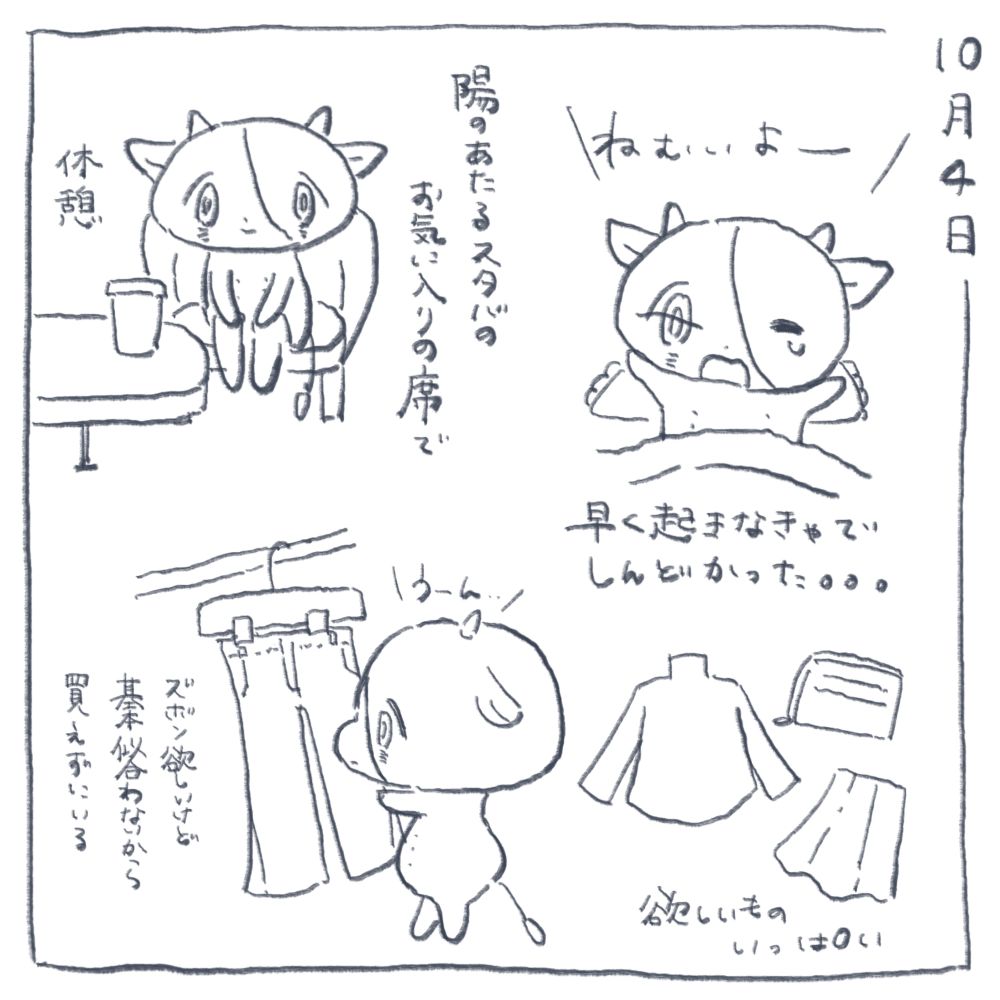 10月4日
ねむぃぃよー
早く起きなきゃで
しんどかった。。。
陽のあたるスタバの
お気に入りの席で
休憩
欲しいもの
いっぱい
うーん..
ズボン欲しいけど
基本似合わないから
買えずにいる